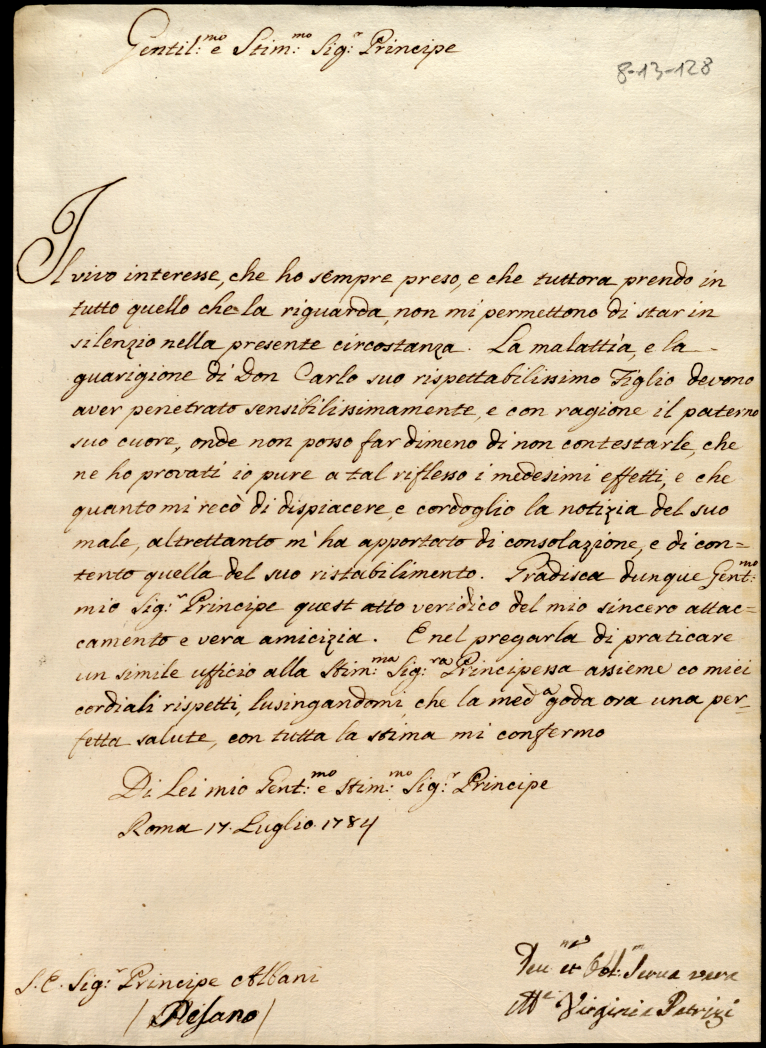 Gentil:mo e Stim:mo Sig:r Principe
8-13-128
Il vivo interesse, che ho sempre preso, e che tuttora prendo in
tutto quello che la riguarda, non mi permettono di star in
silenzio nella presente circostanza. La malattia, e la
guarigione di Don Carlo suo rispettabilissimo Figlio devono
aver penetrato sensibilissimamente, e con ragione il paterno
suo cuore, onde non posso far dimeno di non contestarle, che
ne ho provati io pure a tal riflesso i medesimi effetti, e che
quanto mi recò di dispiacere, e cordoglio la notizia del suo
male, altrettanto m'ha apportato di consolazione, e di con=
tento quella del suo ristabilimento. Gradisca dunque Gent:mo
mio Sig:r Principe quest atto veridico del mio sincero attac=
camento e vera amicizia. E nel pregarla di praticare
un simile ufficio alla Stim:ma Sig:ra Principessa assieme co miei
cordiali rispetti, lusingandomi, che la meda goda ora una per=
fetta salute, con tutta la stima mi confermo
Di Lei mio Gent:mo e Stim:mo Sig:r Principe
Roma 17. Luglio 1784
S. E. Sig:r Principe Albani
/ Pesano /
Dev:ma et Obl:ma Serva vera
Virginia Patrizi